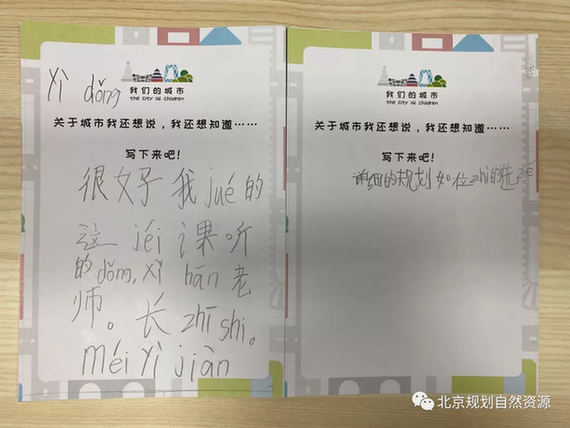 我们的城市
the city of children
Yì dǒng
关于城市我还想说，我还想知道……
写下来吧！
很好 我 jué 的
这 jéi 课 听
的 dǒng, xǐ hān 老
师。长 zhī shi。
méi yì jiàn
我们的城市
the city of children
关于城市我还想说，我还想知道……
写下来吧！
详细的规划 如位zhì的选zé
北京规划自然资源